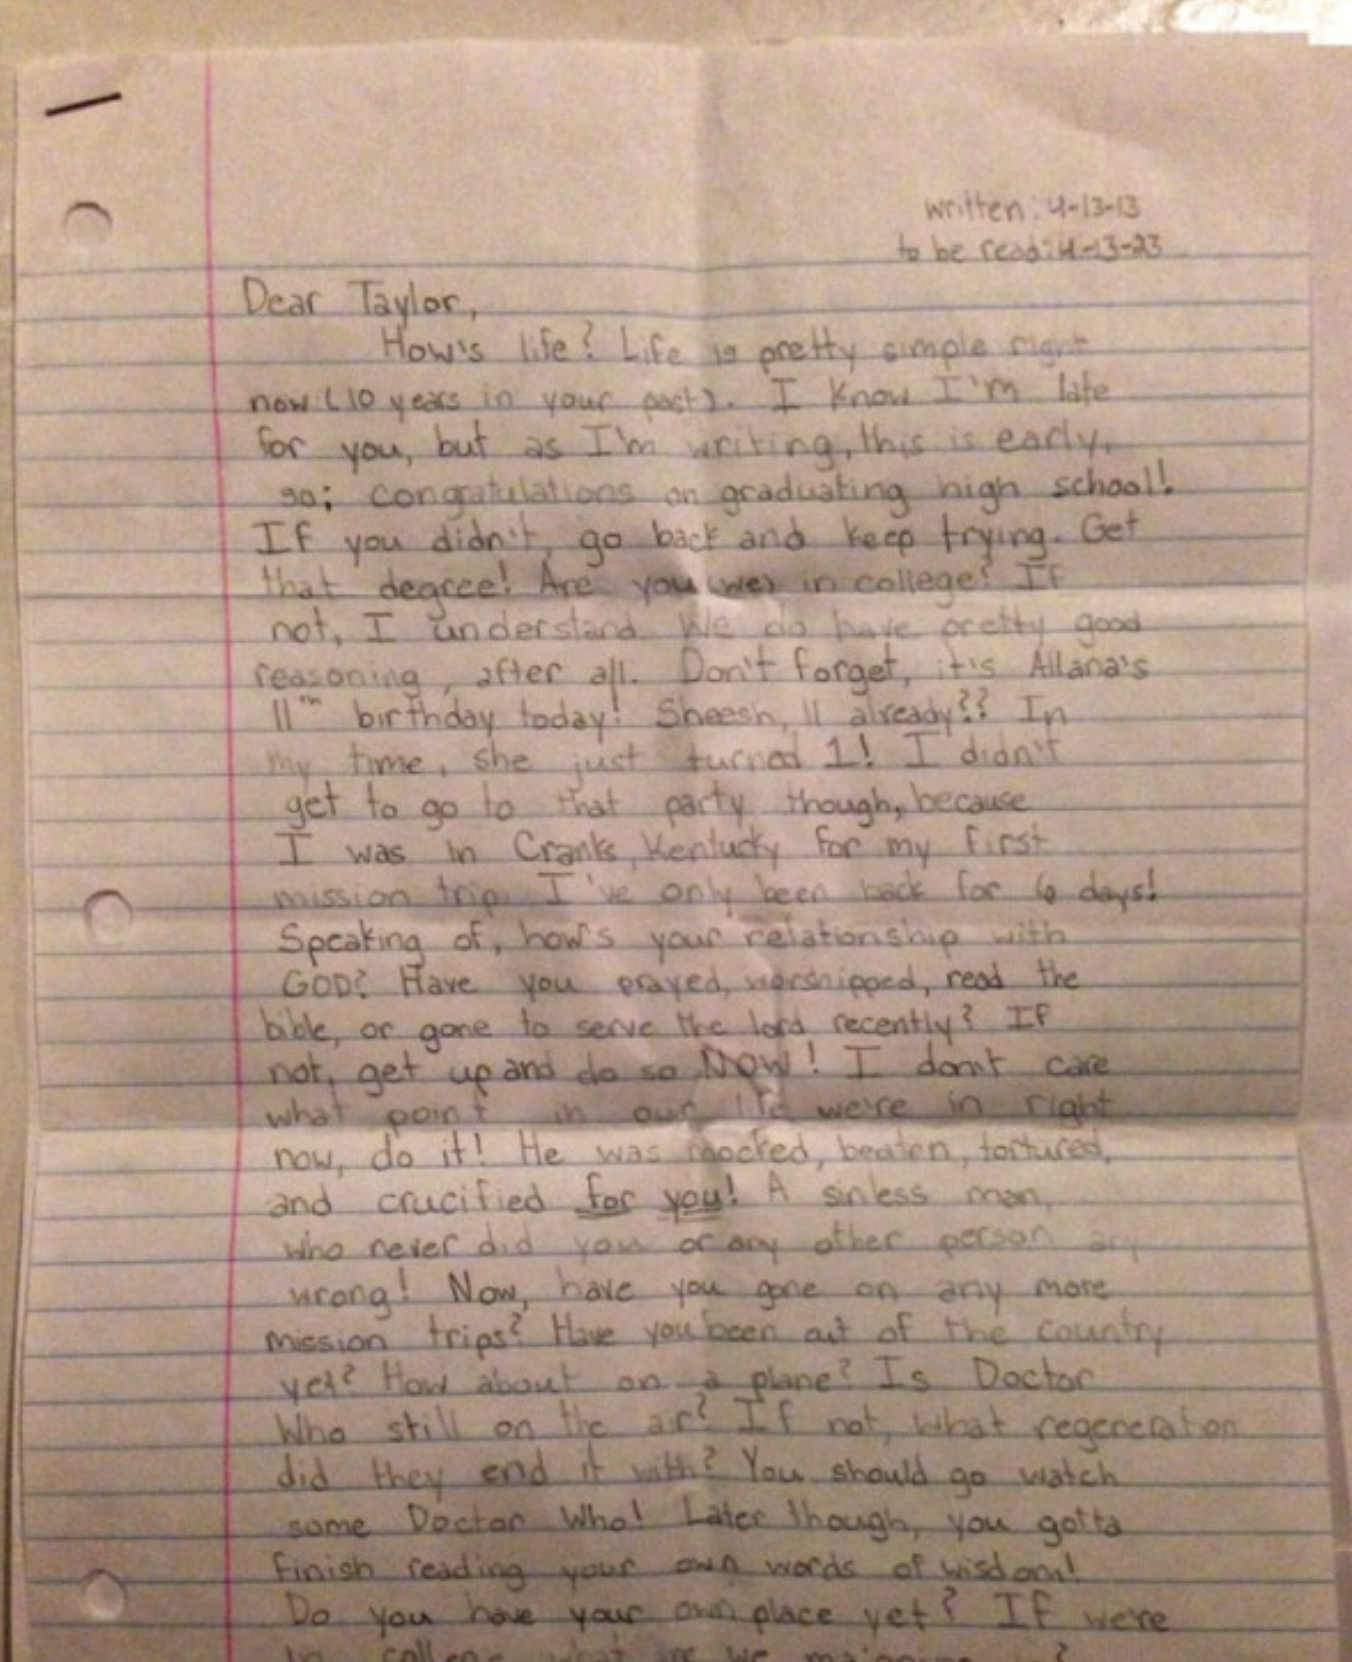 written: 4-13-13
to be read: 4-13-23
Dear Taylor,
How's life? Life is pretty simple right
now (10 years in your past). I know I'm late
for you, but as I'm writing, this is early,
so; congratulations on graduating high school!
If you didn't, go back and keep trying. Get
that degree! Are you (we) in college? If
not, I understand. We do have pretty good
reasoning, after all. Don't forget, it's Allana's
11th birthday today! Sheesh, 11 already?? In
my time, she just turned 1! I didn't
get to go to that party though, because
I was in Cranks, Kentucky for my first
mission trip. I've only been back for 6 days!
Speaking of, how's your relationship with
GOD? Have you prayed, worshipped, read the
bible, or gone to serve the lord recently? If
not, get up and do so NOW! I don't care
what point in our life we're in right
now, do it! He was mocked, beaten, tortured,
and crucified for you! A sinless man,
who never did you or any other person any
wrong! Now, have you gone on any more
mission trips? Have you been out of the country
yet? How about on a plane? Is Doctor
Who still on the air? If not, what regeneration
did they end it with? You should go watch
some Doctor Who! Later though, you gotta
finish reading your own words of wisdom!
Do you have your own place yet? If we're
in college, what are we majoring in?